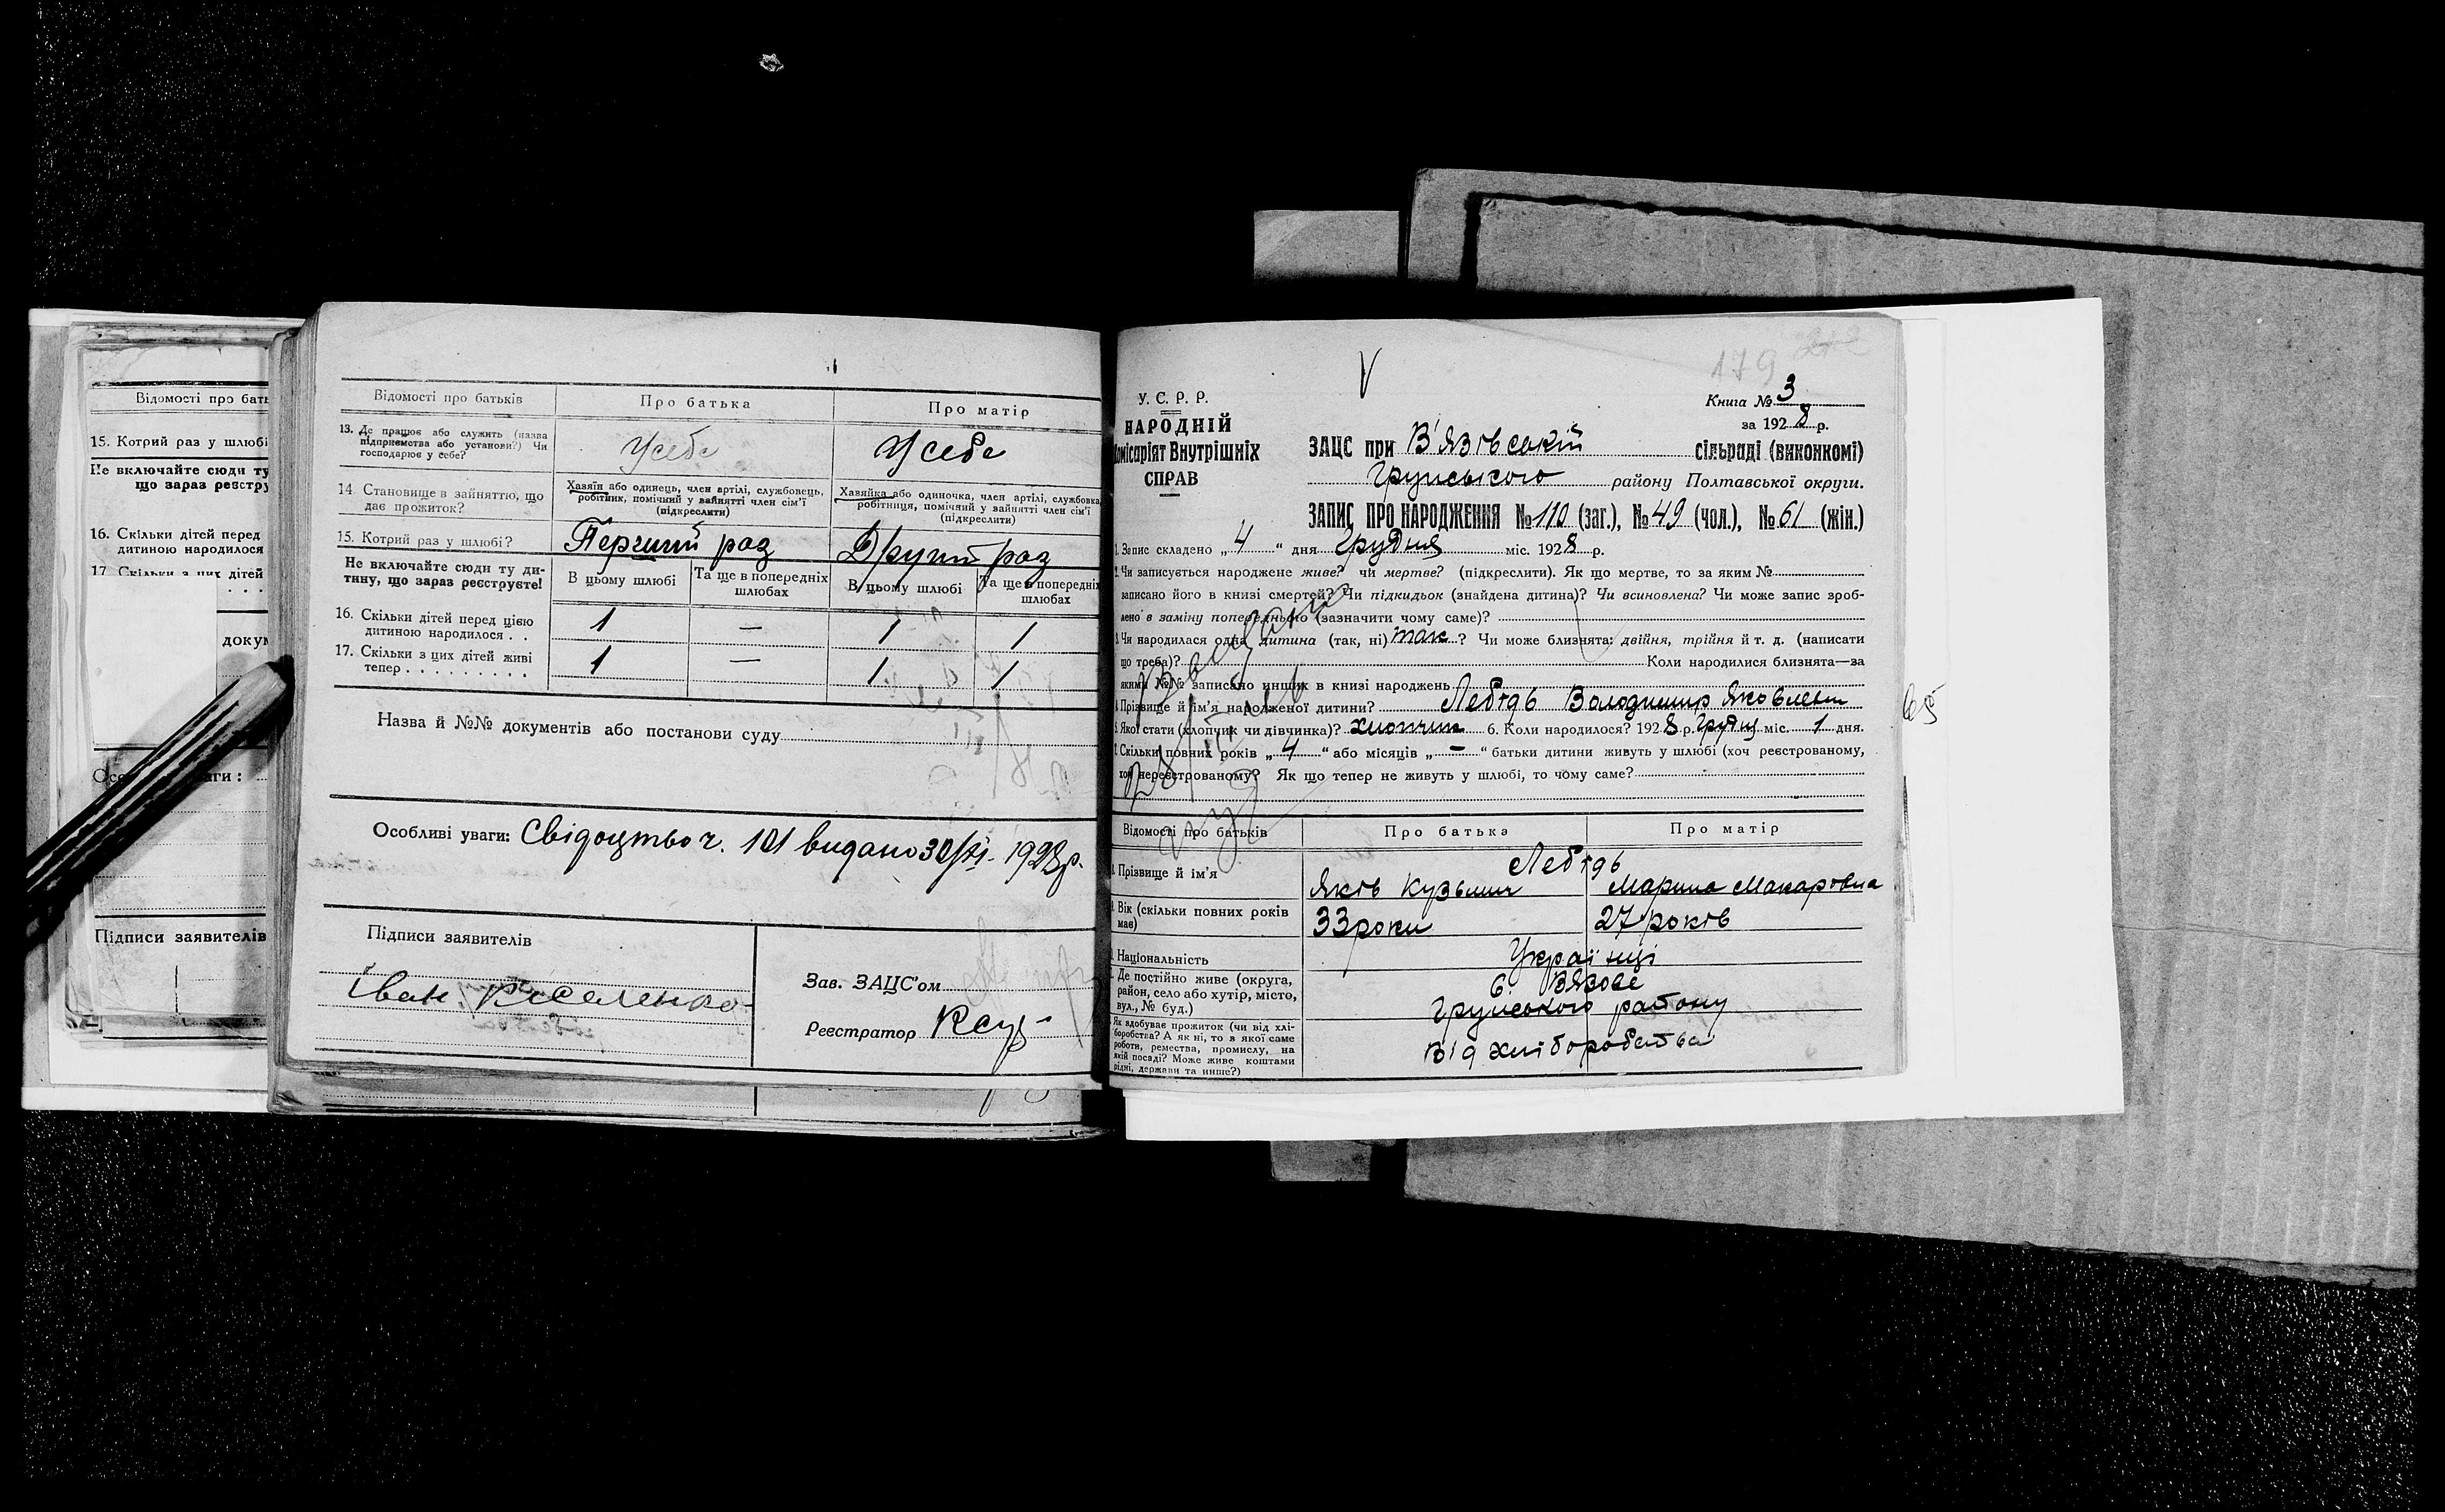 Відомості про бать
15. Котрий раз у шлюбі
Не включайте сюди ту
що зараз реєстру
16. Скільки дітей перед
дитиною народилося
17 Скільки з цих дітей
. . .
докум
Підписи заявителів
Відомості про батьків
Про батька
Про матір
13. Де працює або служить (назва
підприємства або установи?) Чи
господарює у себе?
Усебе
Усебе
14 Становище в зайняттю, що
дає прожиток?
Хазяїн або одинець, член артілі, службовець,
робітник, помічний у зайнятті член сім'ї
(підкреслити)
Хазяйка або одиночка, член артілі, службовка,
робітниця, помічний у зайнятті член сім'ї
(підкреслити)
15. Котрий раз у шлюбі?
Перший раз
Другий раз
Не включайте сюди ту ди-
тину, що зараз реєструєте!
В цьому шлюбі
Та ще в попередніх
шлюбах
В цьому шлюбі
Та ще в попередніх
шлюбах
16. Скільки дітей перед цією
дитиною народилося . .
1 — 1 1
17. Скільки з цих дітей живі
тепер . . . . . . . . .
1 — 1 1
Назва й №№ документів або постанови суду
Особливі уваги: Свідоцтво ч. 101 видано 30/XI - 1928р.
Підписи заявителів
Іван Киселенко
Зав. ЗАЦС'ом
Реєстратор
179
У. С. Р. Р.
НАРОДНІЙ
Комісаріят Внутрішніх
СПРАВ
Книга № 3
за 1928 р.
ЗАЦС при В'язівській сільраді (виконкомі)
Грунського району Полтавської округи.
ЗАПИС ПРО НАРОДЖЕННЯ № 110 (заг.), № 49 (чол.), № 61 (жін.)
1. Запис складено „ 4 “ дня Грудня міс. 1928 р.
2. Чи записується народжене живе? чи мертве? (підкреслити). Як що мертве, то за яким №
записано його в книзі смертей? Чи підкидьок (знайдена дитина)? Чи всиновлена? Чи може запис зроб-
лено в заміну попереднього (зазначити чому саме)?
3. Чи народилася одна дитина (так, ні) так ? Чи може близнята: двійня, трійня й т. д. (написати
що треба)? Коли народилися близнята—за
якими №№ записано инших в книзі народжень
4. Прізвище й ім'я народженої дитини? Лебідь Володимир Яковлевич
5. Якої стати (хлопчик чи дівчинка)? хлопчик 6. Коли народилося? 1928 р. Грудня міс. 1 дня.
7. Скільки повних років „ 4 “ або місяців „ — “ батьки дитини живуть у шлюбі (хоч реєстрованому,
хоч нереєстрованому? Як що тепер не живуть у шлюбі, то чому саме?
Відомості про батьків
Про батька
Про матір
8. Прізвище й ім'я
Лебідь
Яків Кузьмич
Марина Макаровна
9. Вік (скільки повних років
має)
33 роки
27 років
Національність
Українці
Де постійно живе (округа,
район, село або хутір, місто,
вул., № буд.)
С. Вязове
Грунського району
Як здобуває прожиток (чи від хлі-
боробства? А як ні, то з якої саме
роботи, ремества, промислу, на
якій посаді? Може живе коштами
рідні, держави та инше?)
Від хліборобства